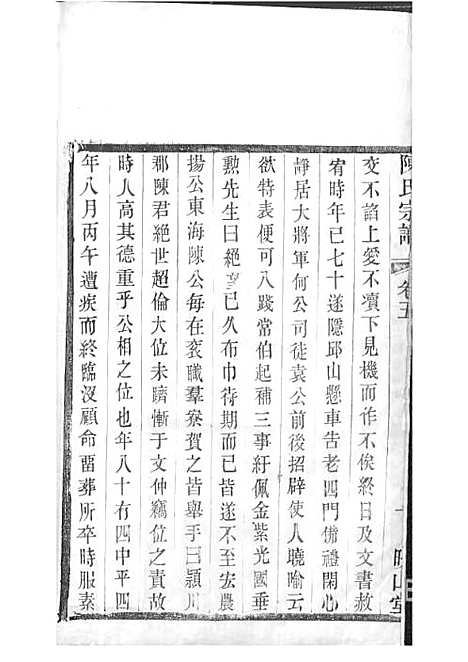 陳氏宗譜 卷五
交不諂上愛不瀆下見機而作不俟終日及文書赦
宥時年已七十遂隱邱山懸車告老四門備禮閑心
靜居大將軍何公司徒袁公前後招辟使人曉喻云
欲特表便可入踐常伯起補三事紆佩金紫光國垂
勲先生曰絶望已久布巾待期而已皆遂不至宏農
揚公東海陳公每在衮職羣寮賀之皆舉手曰潁川
郡陳君絶世超倫大位未躋慚于文仲竊位之責故
時人高其德重乎公相之位也年八十有四中平四
年八月丙午遭疾而終臨沒顧命畱葬所卒時服素